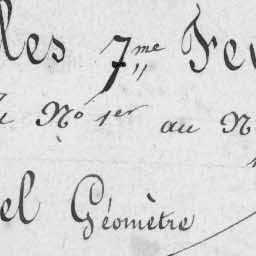 les 7me Feu
N° 1er au N
el Géomètre